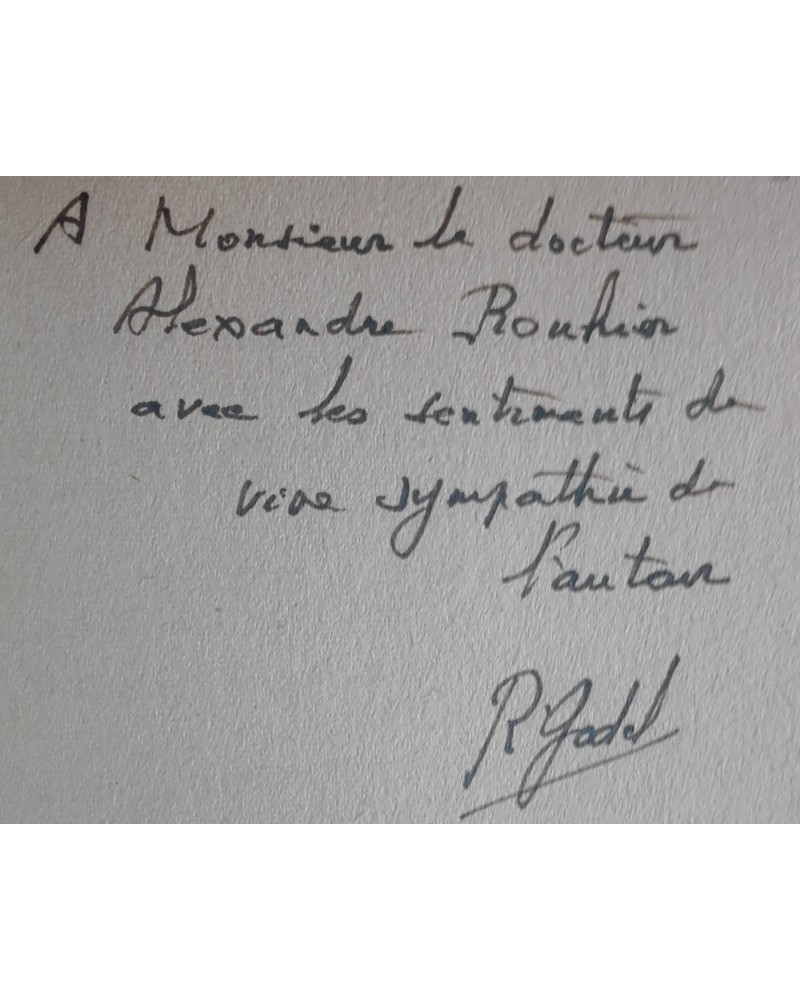 A Monsieur le docteur
Alexandre Rouhier
avec les sentiments de
vive sympathie de
l'auteur
R Godel